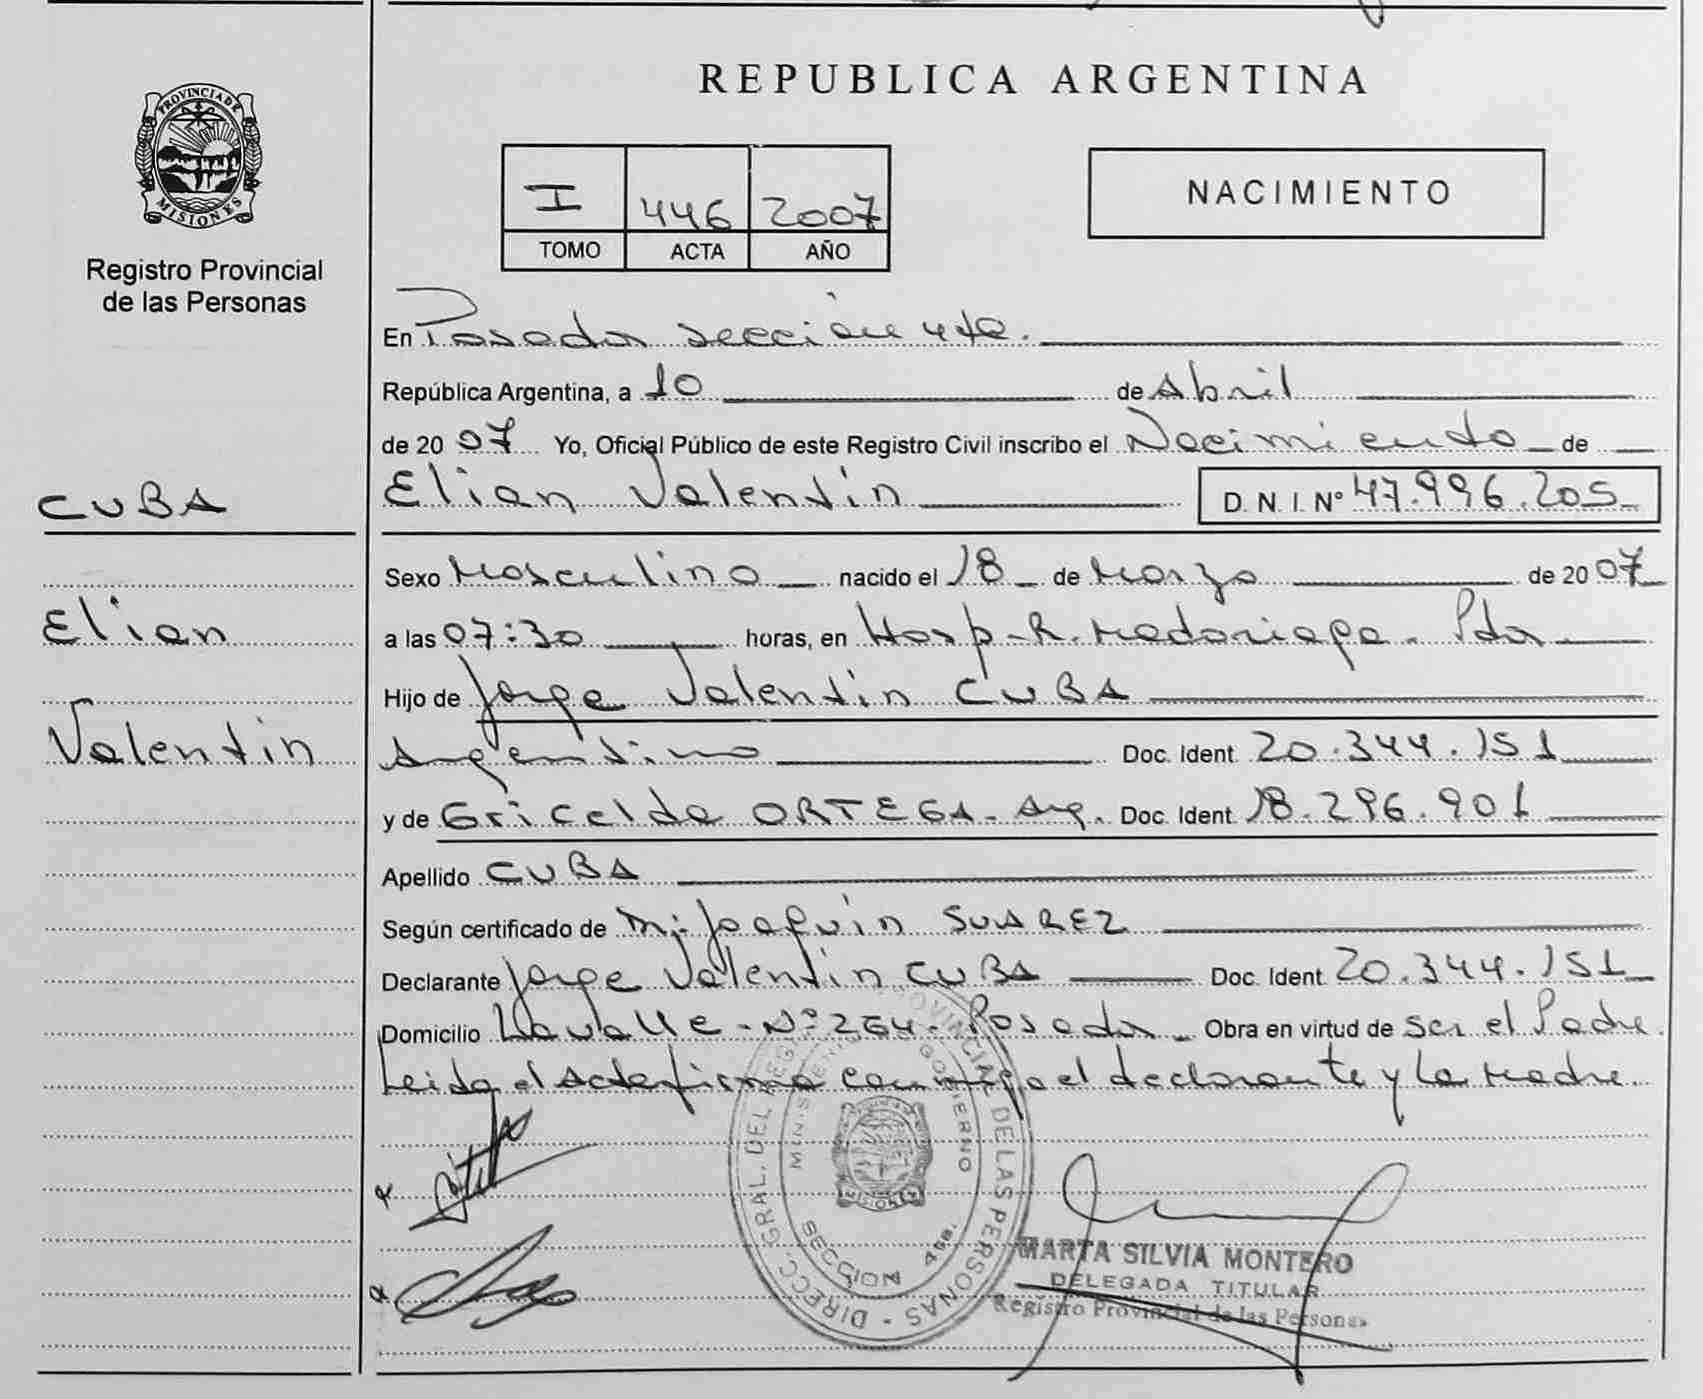 PROVINCIA DE
MISIONES
Registro Provincial
de las Personas
CUBA
Elian
Valentin
REPUBLICA ARGENTINA
I 446 2007
TOMO ACTA AÑO
NACIMIENTO
En Posadas sección 4ta.
República Argentina, a 10 de Abril
de 2007 Yo, Oficial Público de este Registro Civil inscribo el Nacimiento de
Elian Valentin D.N.I. Nº 47.996.205
Sexo Masculino nacido el 18 de Marzo de 2007
a las 07:30 horas, en Hosp. R. Madariaga. Pdas
Hijo de Jorge Valentin CUBA
Argentino Doc. Ident. 20.344.151
y de Gricelda ORTEGA. Arg. Doc. Ident. 18.296.901
Apellido CUBA
Según certificado de Joaquin SUAREZ
Declarante Jorge Valentin CUBA Doc. Ident. 20.344.151
Domicilio Lavalle - Nº 264. Posadas Obra en virtud de ser el Padre
Leida el Acta firma conmigo el declarante y la Madre
DIRECC. GRAL. DEL REGISTRO PROVINCIAL DE LAS PERSONAS
MINISTERIO GOBIERNO
SECCION 4ta.
MISIONES
MARTA SILVIA MONTERO
DELEGADA TITULAR
Registro Provincial de las Personas